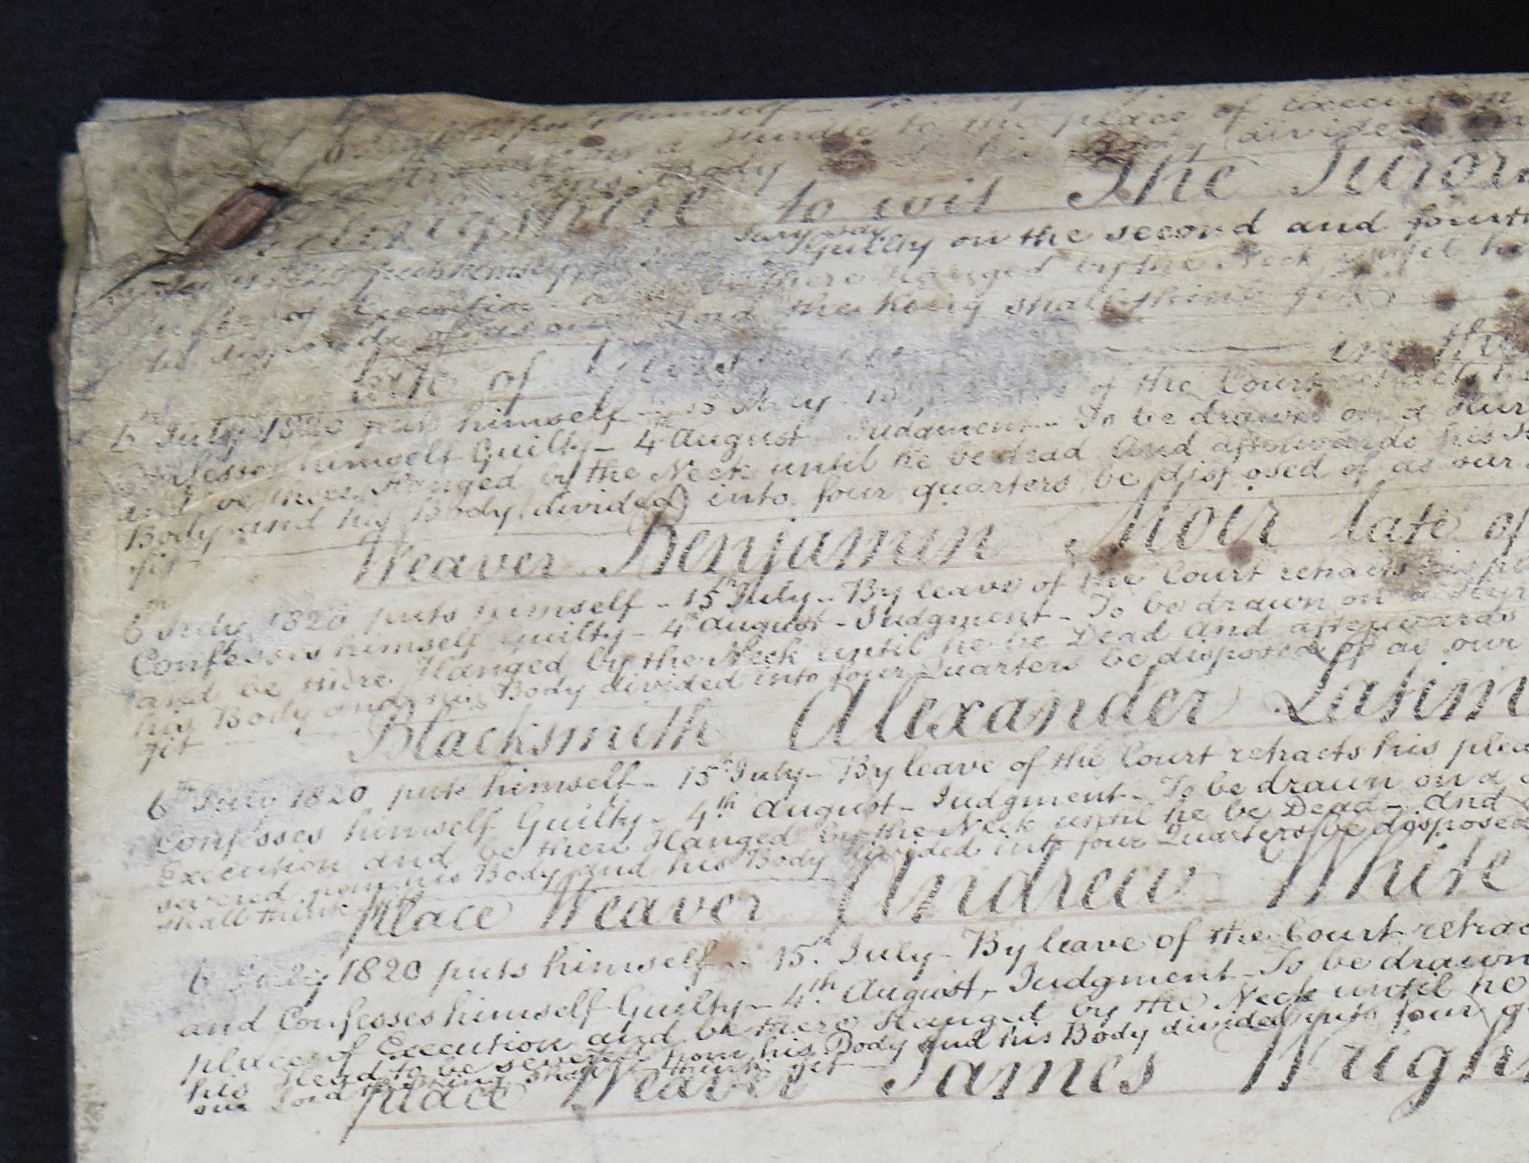 himself
a Hurdle to the place of Execution
Body divided
to wit The Jurors
Jury say
Guilty on the second and fourth
there Hanged by the Neck until he
of Execution
be disposed of as our Lord the King shall think fit
of in the
6th July 1820 puts himself - 15 July of the Court retracts his
Confesses himself Guilty - 4th August Judgment - To be drawn on a Hur
and be there Hanged by the Neck until he be dead and afterwards his
Body and his Body (divided) into four quarters be disposed of as our
fit
Weaver Benjamin Moir late of
6th July 1820 puts himself - 15th July - By leave of the Court retracts his pl
Confesses himself Guilty - 4th August - Judgment - To be drawn on a Hur
and be there Hanged by the Neck until he be Dead and afterwards
his Body and his Body divided into four Quarters be disposed of as our
fit
Blacksmith Alexander Latim
6th July 1820 puts himself - 15th July - By leave of the Court retracts his plea
Confesses himself Guilty - 4th August - Judgment - To be drawn on a
Execution and be there Hanged by the Neck until he be Dead - And
severed from his Body and his Body divided into four Quarters be disposed
shall think
place Weaver Andrew White
6 July 1820 puts himself - 15th July - By leave of the Court retrac
and Confesses himself Guilty - 4th August - Judgment - To be drawn
place of Execution and be there Hanged by the Neck until he
his Head to be severed from his Body and his Body divided into four q
our Lord the King shall think fit
place Weaver James Wrigh